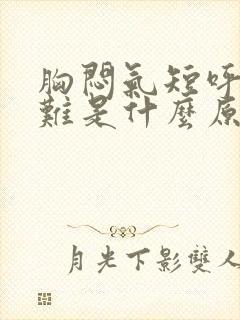 胸悶氣短呼
難是什麼原
月光下影雙人